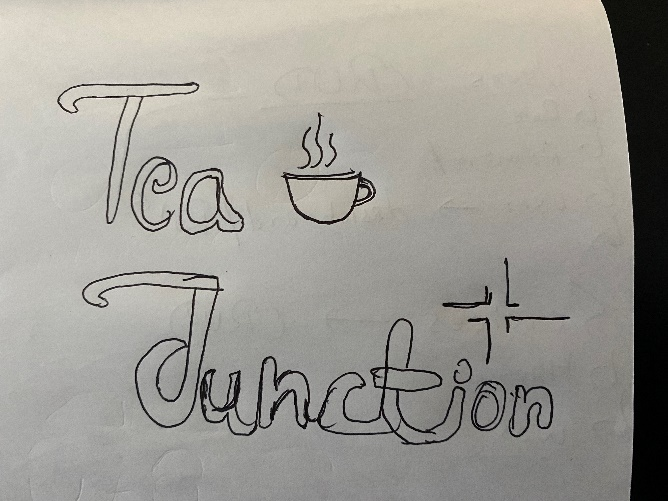 Tea
Junction